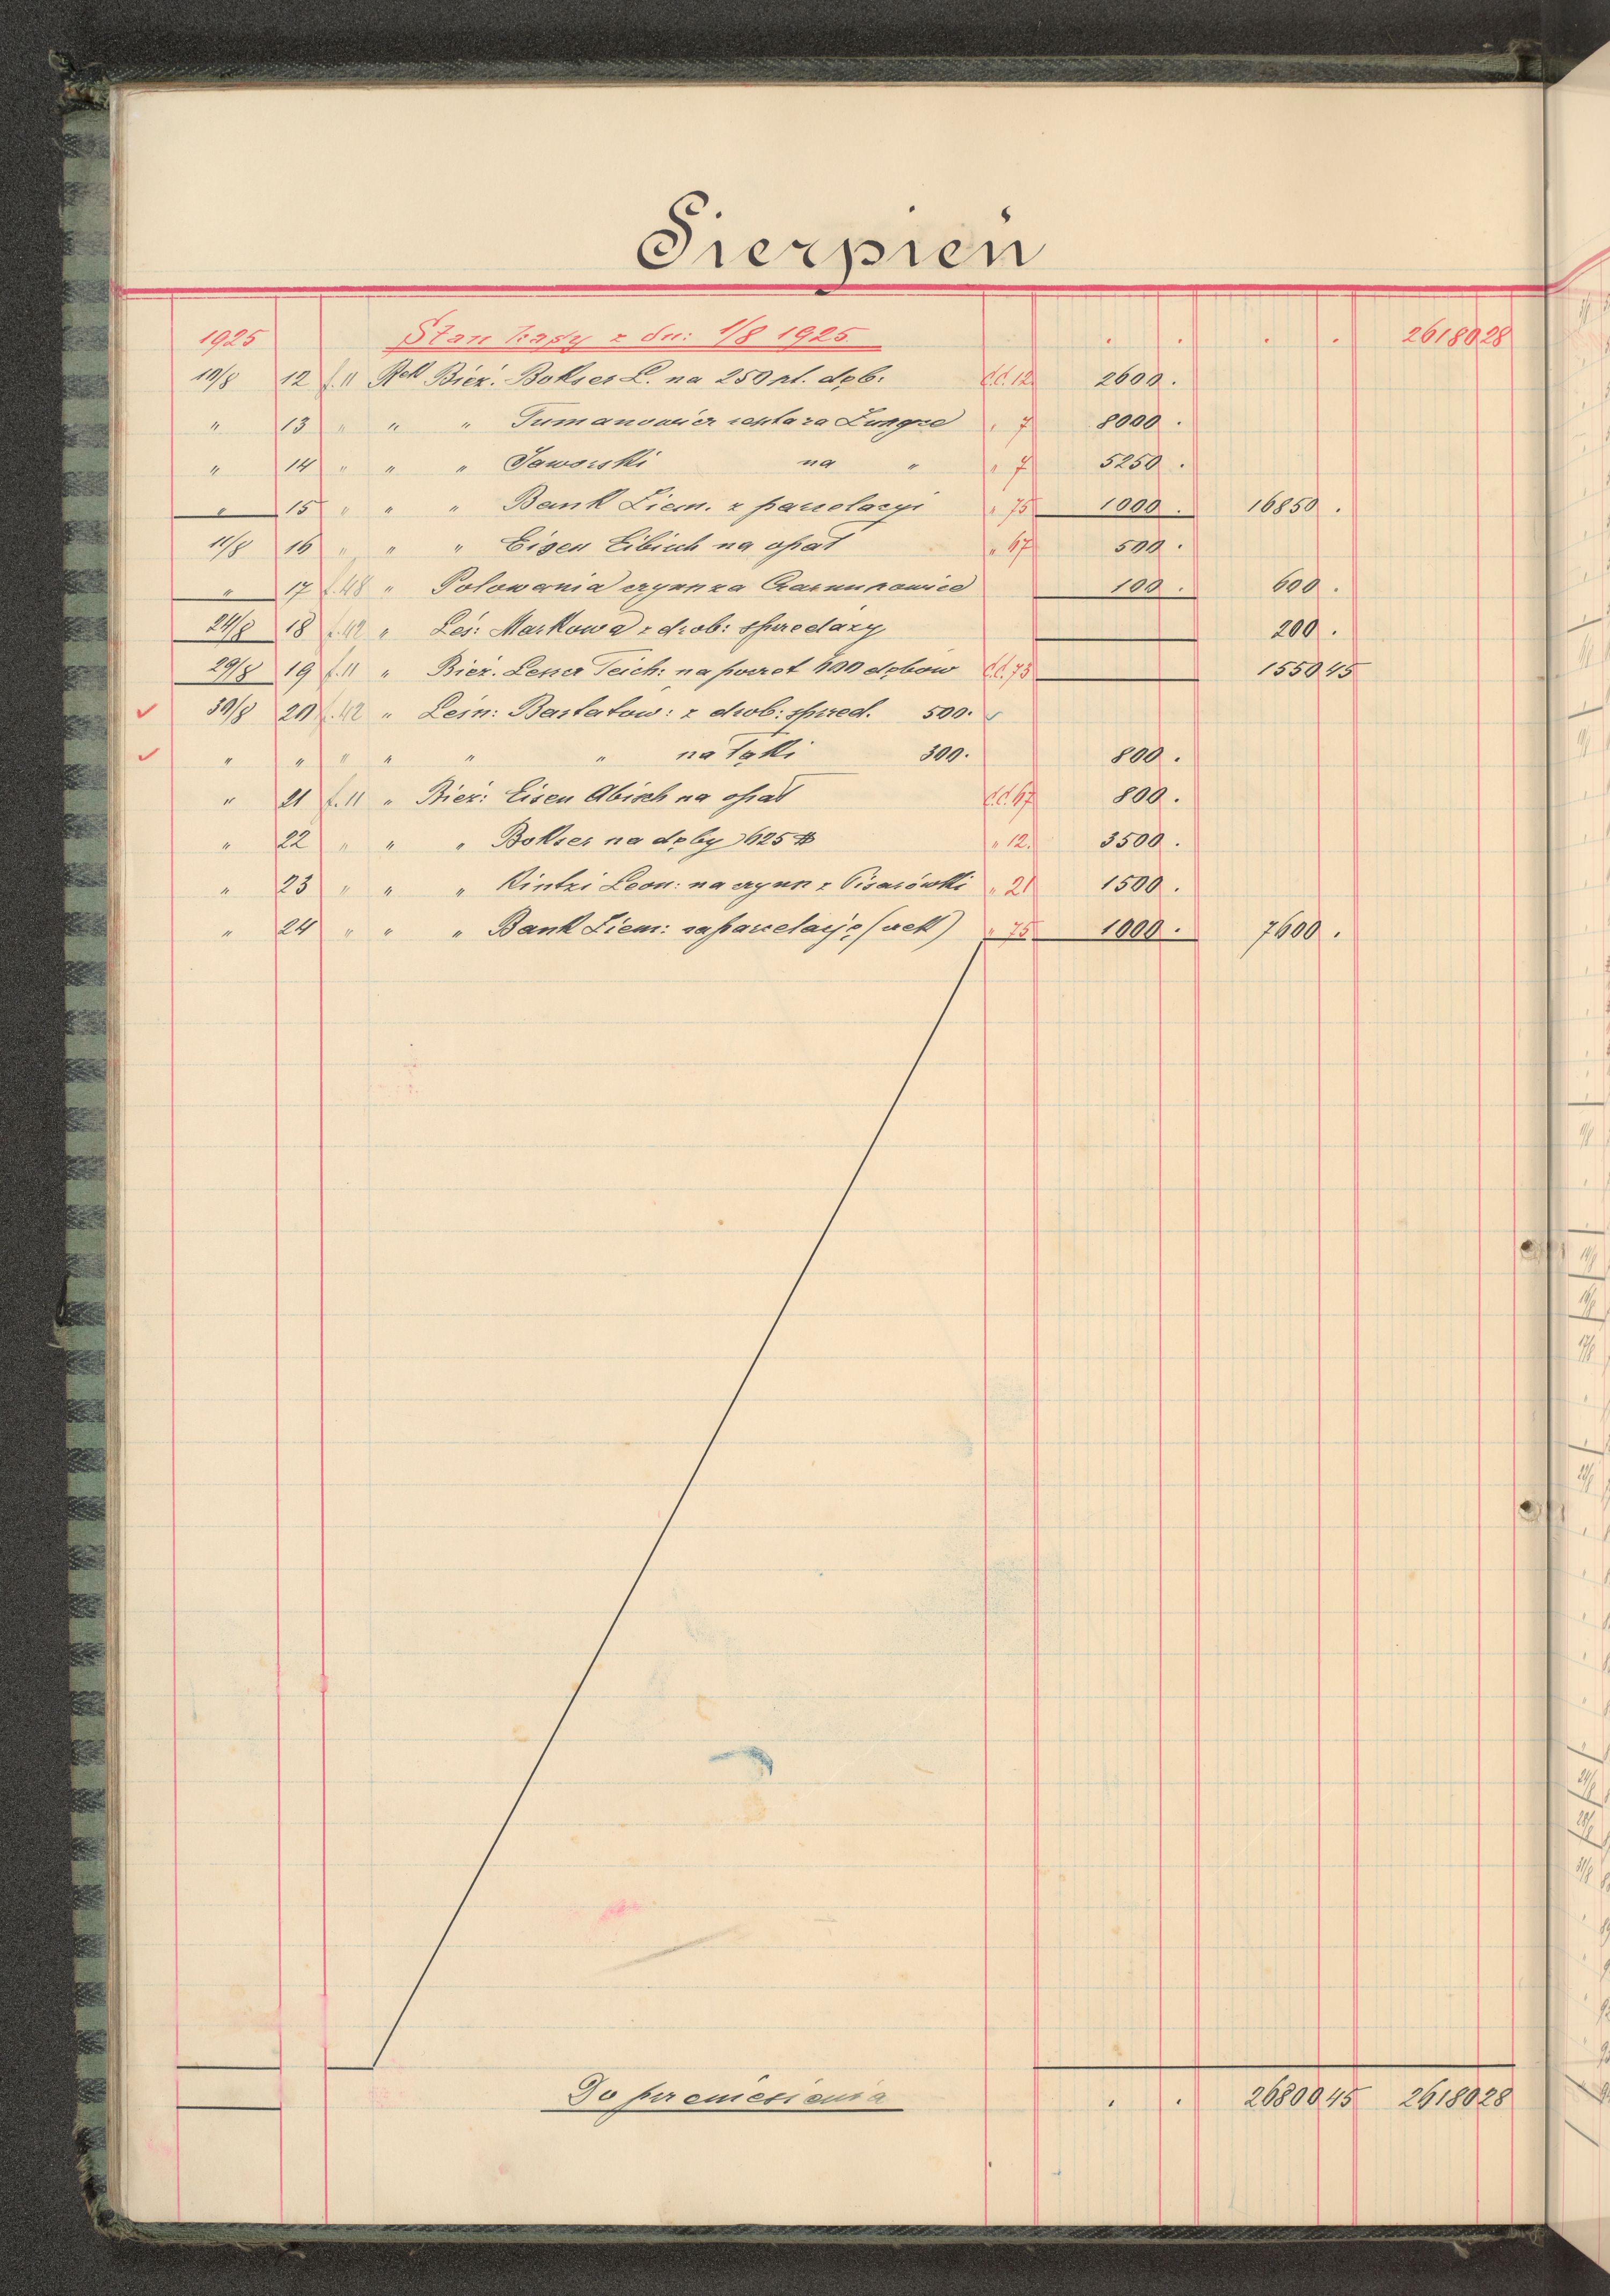 Sierpień
1925 Stan kasy z dn: 1/8 1925 . . . . 26180 28
10/8 12 f. 11 Rek Bież. Bokser L. na 250 pl. dęb: C.C. 12 2600 .
" 13 " " " Tumanowicz reszta za " 7 8000 .
" 14 " " " Jaworski na " " 7 5250 .
" 15 " " " Bank Ziem. z parcelacyi " 75 1000 . 16850 .
11/8 16 " " " Eisen Eibisch na opał " 67 500 .
" 17 f. 48 " Polowania czynsz za 100 . 600 .
24/8 18 f. 42 " Leś: Markowa z drob: sprzedaży 200 .
29/8 19 f. 11 " Bież. Lesser Teich: na poczet 400 dębów C.C. 73 1550 45
30/8 20 f. 42 " Leśn: z drob: sprzed. 500 .
" " " " " " na Tyłki 300 . 800 .
" 21 f. 11 " Bież: Eisen Abisch na opał C.C. 67 800 .
" 22 " " " Bokser na dęby 625 # " 12. 3500 .
" 23 " " " Kintzi Leon: na czynsz z Pisarówki " 21 1500 .
" 24 " " " Bank Ziem: za parcelację (rek) " 75 1000 . 7600 .
Do przeniesienia . . 26800 45 26180 28